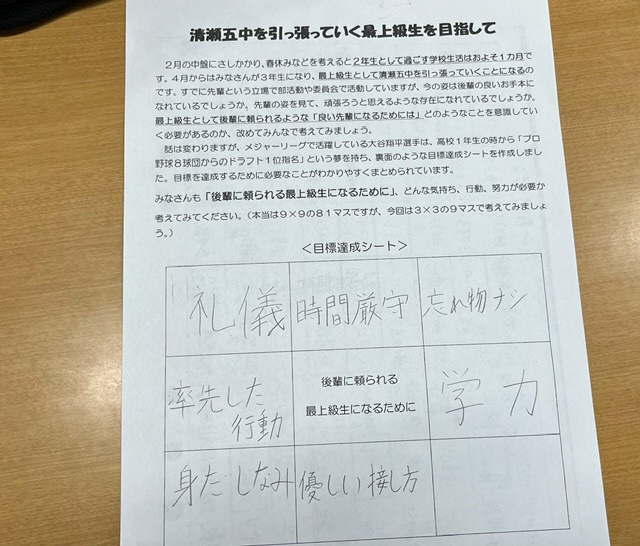 清瀬五中を引っ張っていく最上級生を目指して
２月の中盤にさしかかり、春休みなどを考えると２年生として過ごす学校生活はおよそ１カ月で
す。４月からはみなさんが３年生になり、最上級生として清瀬五中を引っ張っていくことになるの
です。すでに先輩という立場で部活動や委員会で活動していますが、今の姿は後輩の良いお手本に
なれているでしょうか。先輩の姿を見て、頑張ろうと思えるような存在になれているでしょうか。
最上級生として後輩に頼られるような「良い先輩になるためには」どのようなことを意識してい
く必要があるのか、改めてみんなで考えてみましょう。
話は変わりますが、メジャーリーグで活躍している大谷翔平選手は、高校１年生の時から「プロ
野球８球団からのドラフト１位指名」という夢を持ち、裏面のような目標達成シートを作成しまし
た。目標を達成するために必要なことがわかりやすくまとめられています。
みなさんも「後輩に頼られる最上級生になるために」、どんな気持ち、行動、努力が必要か
考えてみてください。（本当は９×９の８１マスですが、今回は３×３の９マスで考えてみましょ
う。）
＜目標達成シート＞
礼儀
時間厳守
忘れ物ナシ
率先した
行動
後輩に頼られる
最上級生になるために
学力
身だしなみ
優しい接し方